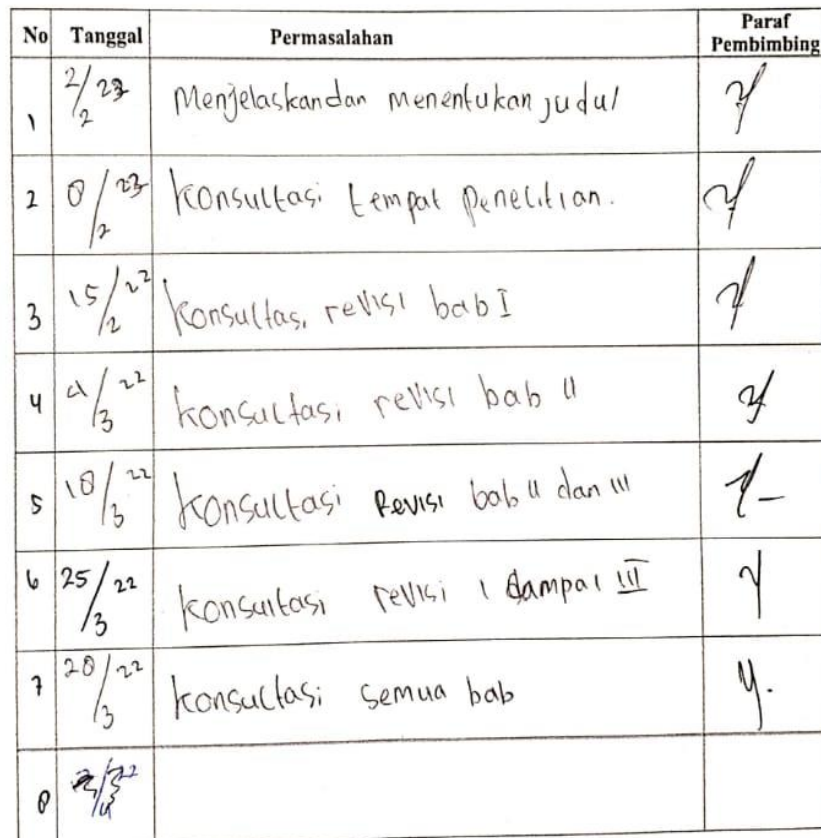 No Tanggal Permasalahan Paraf Pembimbing
1 2/2 23 Menjelaskan dan menentukan judul
2 8/2 23 Konsultasi tempat penelitian.
3 15/2 22 Konsultasi revisi bab I
4 4/3 22 konsultasi revisi bab II
5 18/3 22 Konsultasi Revisi bab II dan III
6 25/3 22 konsultasi revisi I dampai III
7 28/3 22 konsultasi semua bab
8